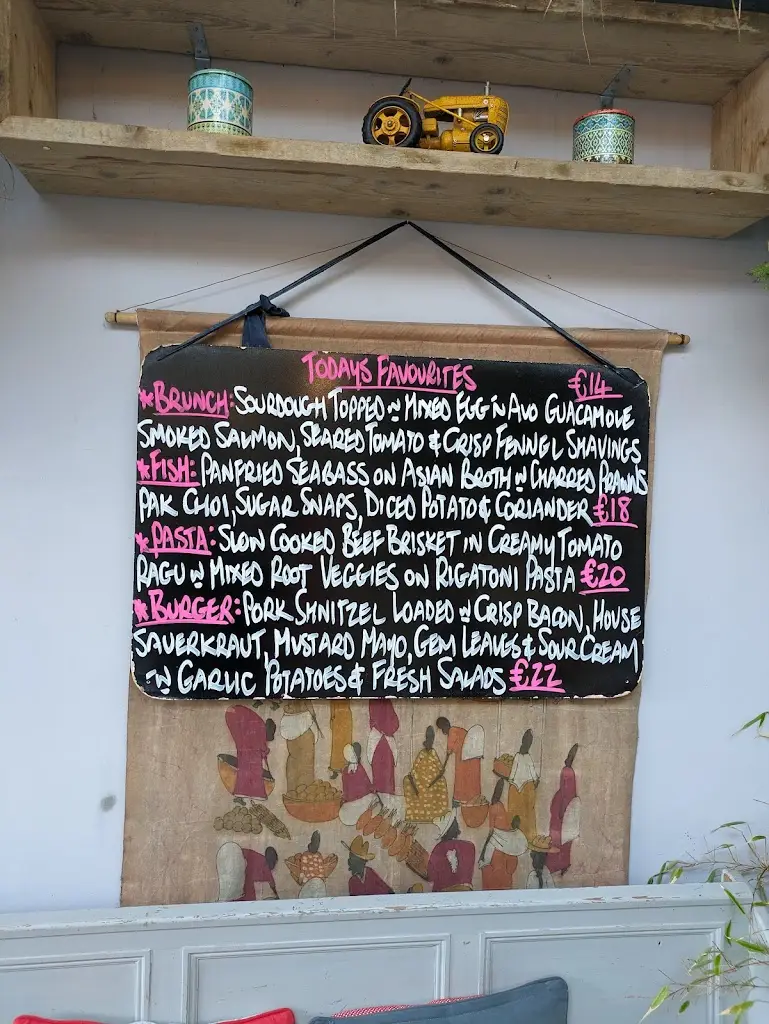 TODAYS FAVOURITES €14
*BRUNCH: SOURDOUGH TOPPED W MIXED EGG'N AVO GUACAMOLE
SMOKED SALMON, SEARED TOMATO & CRISP FENNEL SHAVINGS
*FISH: PANFRIED SEABASS ON ASIAN BROTH W CHARRED PRAWNS
PAK CHOI, SUGAR SNAPS, DICED POTATO & CORIANDER €18
*PASTA: SLOW COOKED BEEF BRISKET IN CREAMY TOMATO
RAGU W MIXED ROOT VEGGIES ON RIGATONI PASTA €20
*BURGER: PORK SHNITZEL LOADED W CRISP BACON, HOUSE
SAUERKRAUT, MUSTARD MAYO, GEM LEAVES & SOUR CREAM
W GARLIC POTATOES & FRESH SALADS €22